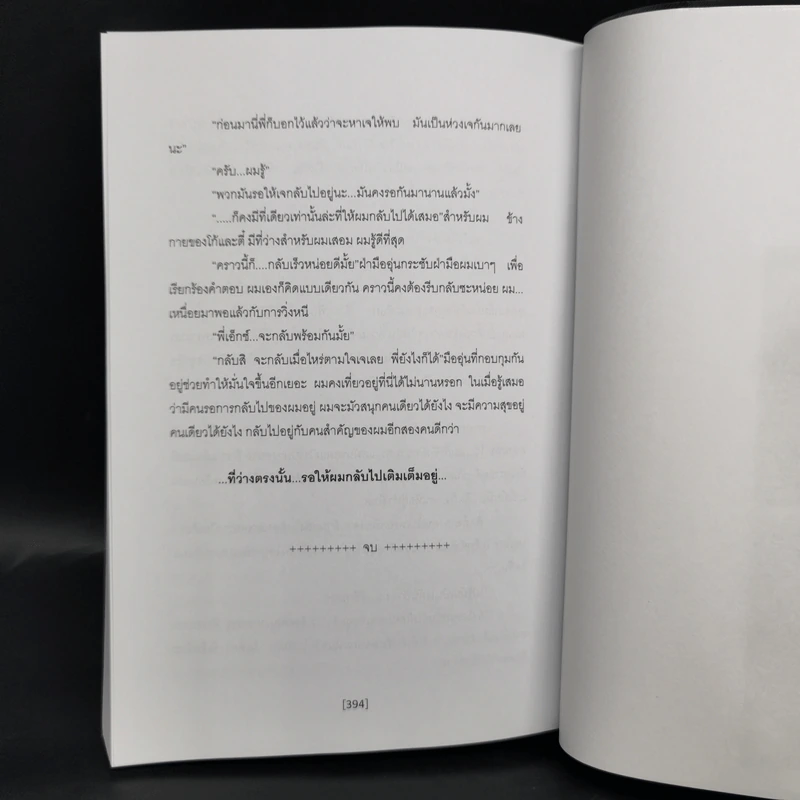 "ก่อนมานี่พี่ก็บอกไว้แล้วว่าจะหาเจให้พบ มันเป็นห่วงเจกันมากเลย
นะ"
"ครับ...ผมรู้"
"พวกมันรอให้เจกลับไปอยู่นะ...มันคงรอกันมานานแล้วมั้ง"
".....ก็คงมีที่เดียวเท่านั้นล่ะที่ให้ผมกลับไปได้เสมอ"สำหรับผม ข้าง
กายของโก้และตี๋ มีที่ว่างสำหรับผมเสอม ผมรู้ดีที่สุด
"คราวนี้ก็....กลับเร็วหน่อยดีมั้ย"ฝ่ามืออุ่นกระชับฝ่ามือผมเบาๆ เพื่อ
เรียกร้องคำตอบ ผมเองก็คิดแบบเดียวกัน คราวนี้คงต้องรีบกลับซะหน่อย ผม...
เหนื่อยมาพอแล้วกับการวิ่งหนี
"พี่เอ็กซ์...จะกลับพร้อมกันมั้ย"
"กลับสิ จะกลับเมื่อไหร่ตามใจเจเลย พี่ยังไงก็ได้"มืออุ่นที่กอบกุมกัน
อยู่ช่วยทำให้มั่นใจขึ้นอีกเยอะ ผมคงเที่ยวอยู่ที่นี่ได้ไม่นานหรอก ในเมื่อรู้เสมอ
ว่ามีคนรอการกลับไปของผมอยู่ ผมจะมัวสนุกคนเดียวได้ยังไง จะมีความสุขอยู่
คนเดียวได้ยังไง กลับไปอยู่กับคนสำคัญของผมอีกสองคนดีกว่า
...ที่ว่างตรงนั้น...รอให้ผมกลับไปเติมเต็มอยู่...
+++++++++ จบ +++++++++
[394]